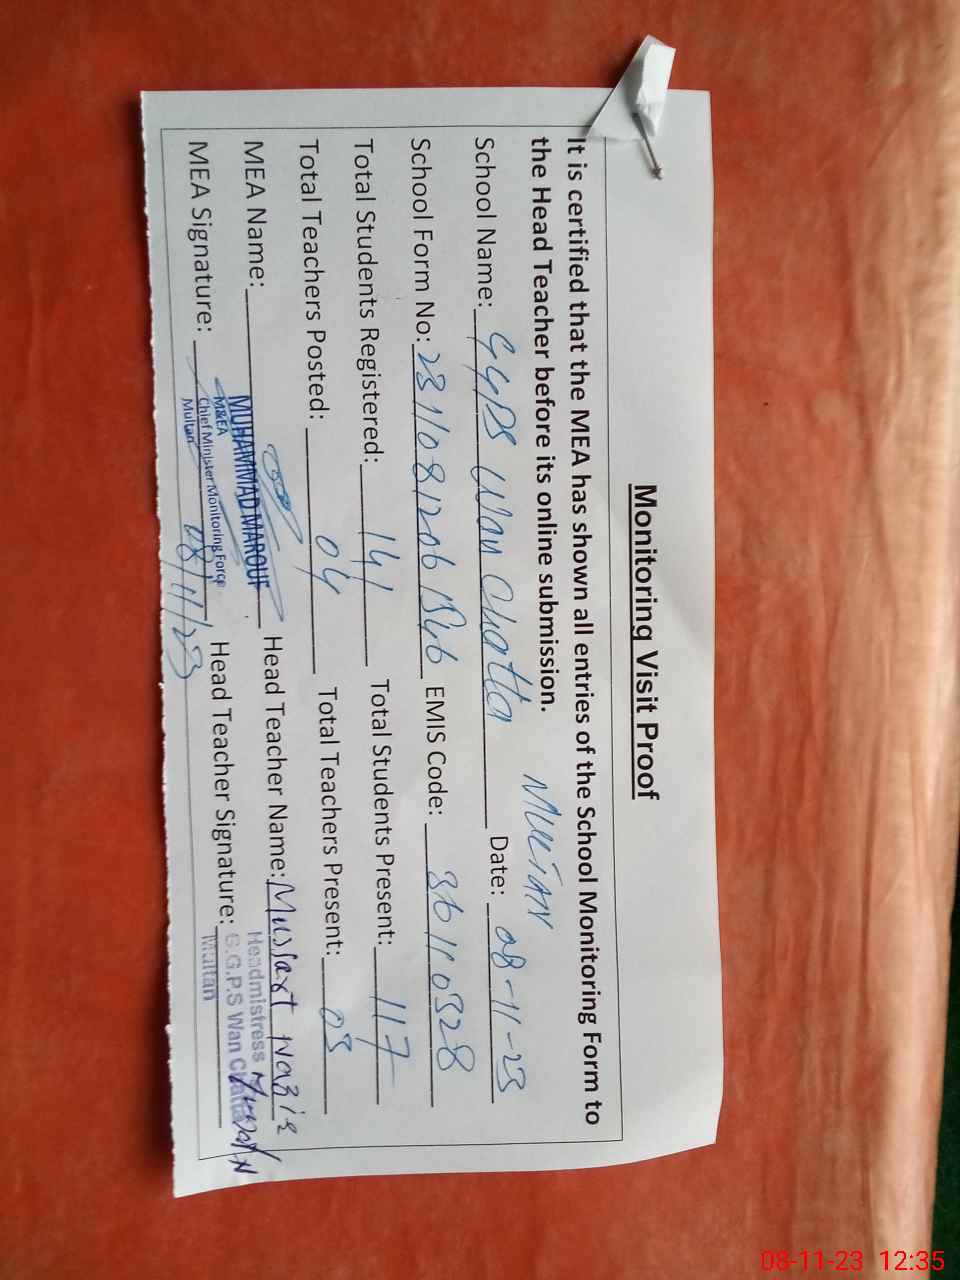 Monitoring Visit Proof
It is certified that the MEA has shown all entries of the School Monitoring Form to
the Head Teacher before its online submission.
MULTAN
School Name: GGPS Wan Chatta Date: 08-11-23
School Form No: 2311081206 1546 EMIS Code: 36110328
Total Students Registered: 141 Total Students Present: 117
Total Teachers Posted: 04 Total Teachers Present: 03
MEA Name: MUHAMMAD MAROUF Head Teacher Name: Mussart Nazir
M&EA
Chief Minister Monitoring Force
Multan
MEA Signature: 08/11/23 Head Teacher Signature:
Headmistress
G.G.P.S Wan Chatta
Multan
08-11-23 12:35